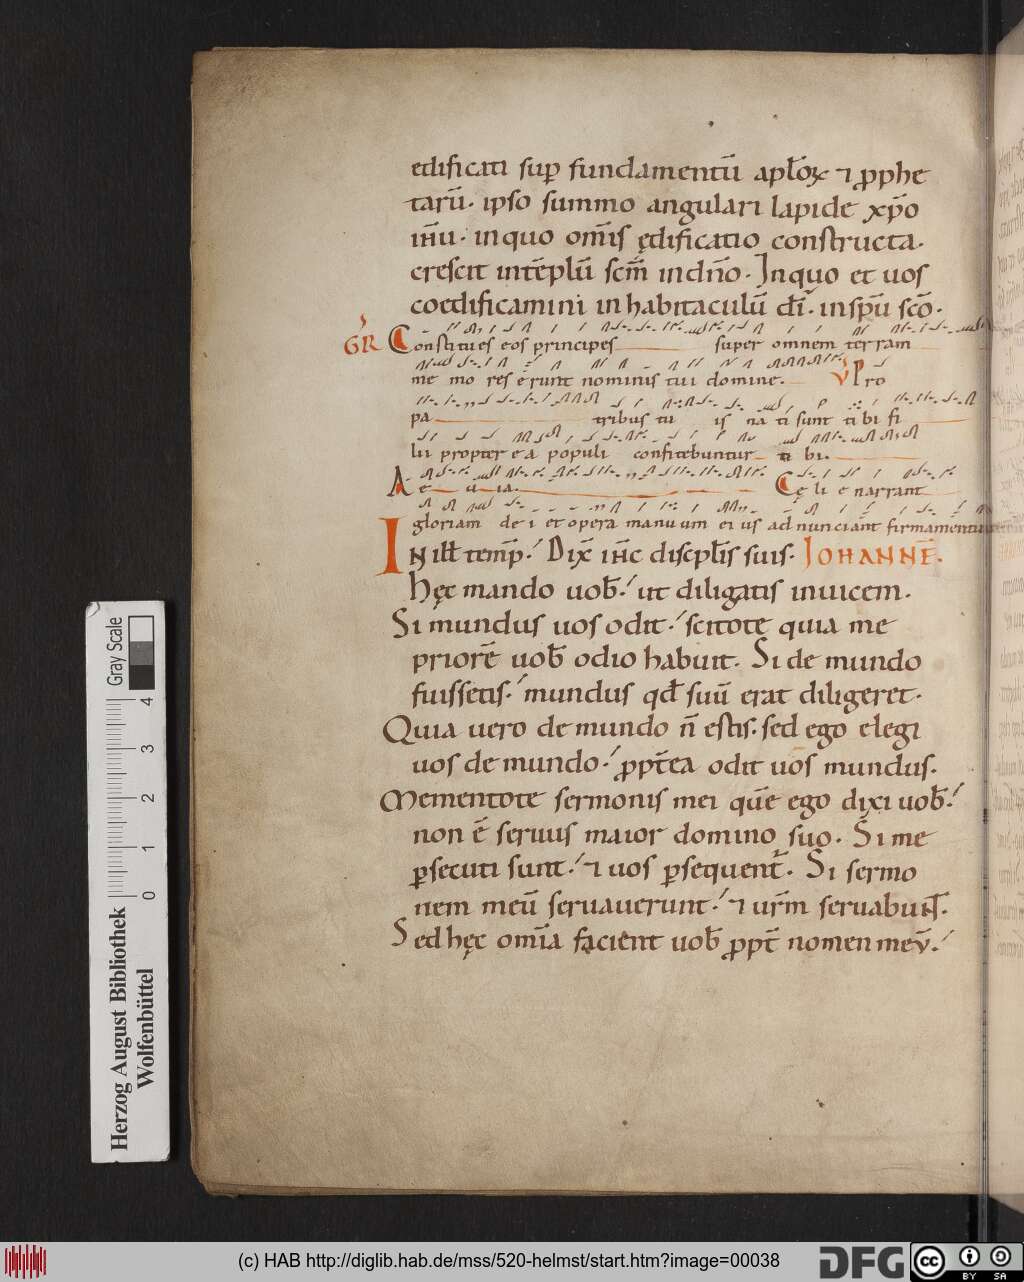 edificati sup fundamentū apl̄oꝝ ⁊ pphe
tarū. ipso summo angulari lapide xp̄o
ih̄u. inquo om̄is ędificatio constructa.
crescit intēplū sc̄m indn̄o. Inquo et uos
coedificamini inhabitaculū dī. inspū scō.
GR̄ Constitues eos principes super omnem terram
me mo res erunt nominis tui domine. V Pro
pa tribus tu is na ti sunt ti bi fi
lii propter ea populi confitebuntur ti bi.
A e u ia. Cę li e narrant
gloriam de i et opera manu um ei us ad nun ciant firmamentu
IN ill̄ temp̄. Dix̄ ih̄c discpl̄is suis. IOHANNĒ.
Hęc mando uob̄. ut diligatis inuicem.
Si mundus uos odit. scitote quia me
priorē uob̄ odio habuit. Si de mundo
fuissetis. mundus qd̄ suū erat diligeret.
Quia uero de mundo n̄ estis. sed ego elegi
uos de mundo. ꝓpt̄ea odit uos mundus.
Mementote sermonis mei quē ego dixi uob̄.
non ē seruus maior domino suo. Si me
ꝑsecuti sunt. ⁊ uos ꝑsequent̄. Si sermo
nem meū seruauerunt. ⁊ ur̄m seruabunt.
Sed hęc om̄ia facient uob̄ ꝓpt̄ nomen meū.
Gray Scale
4
3
2
1
0
Herzog August Bibliothek
Wolfenbüttel
(c) HAB http://diglib.hab.de/mss/520-helmst/start.htm?image=00038
DFG
cc
BY SA